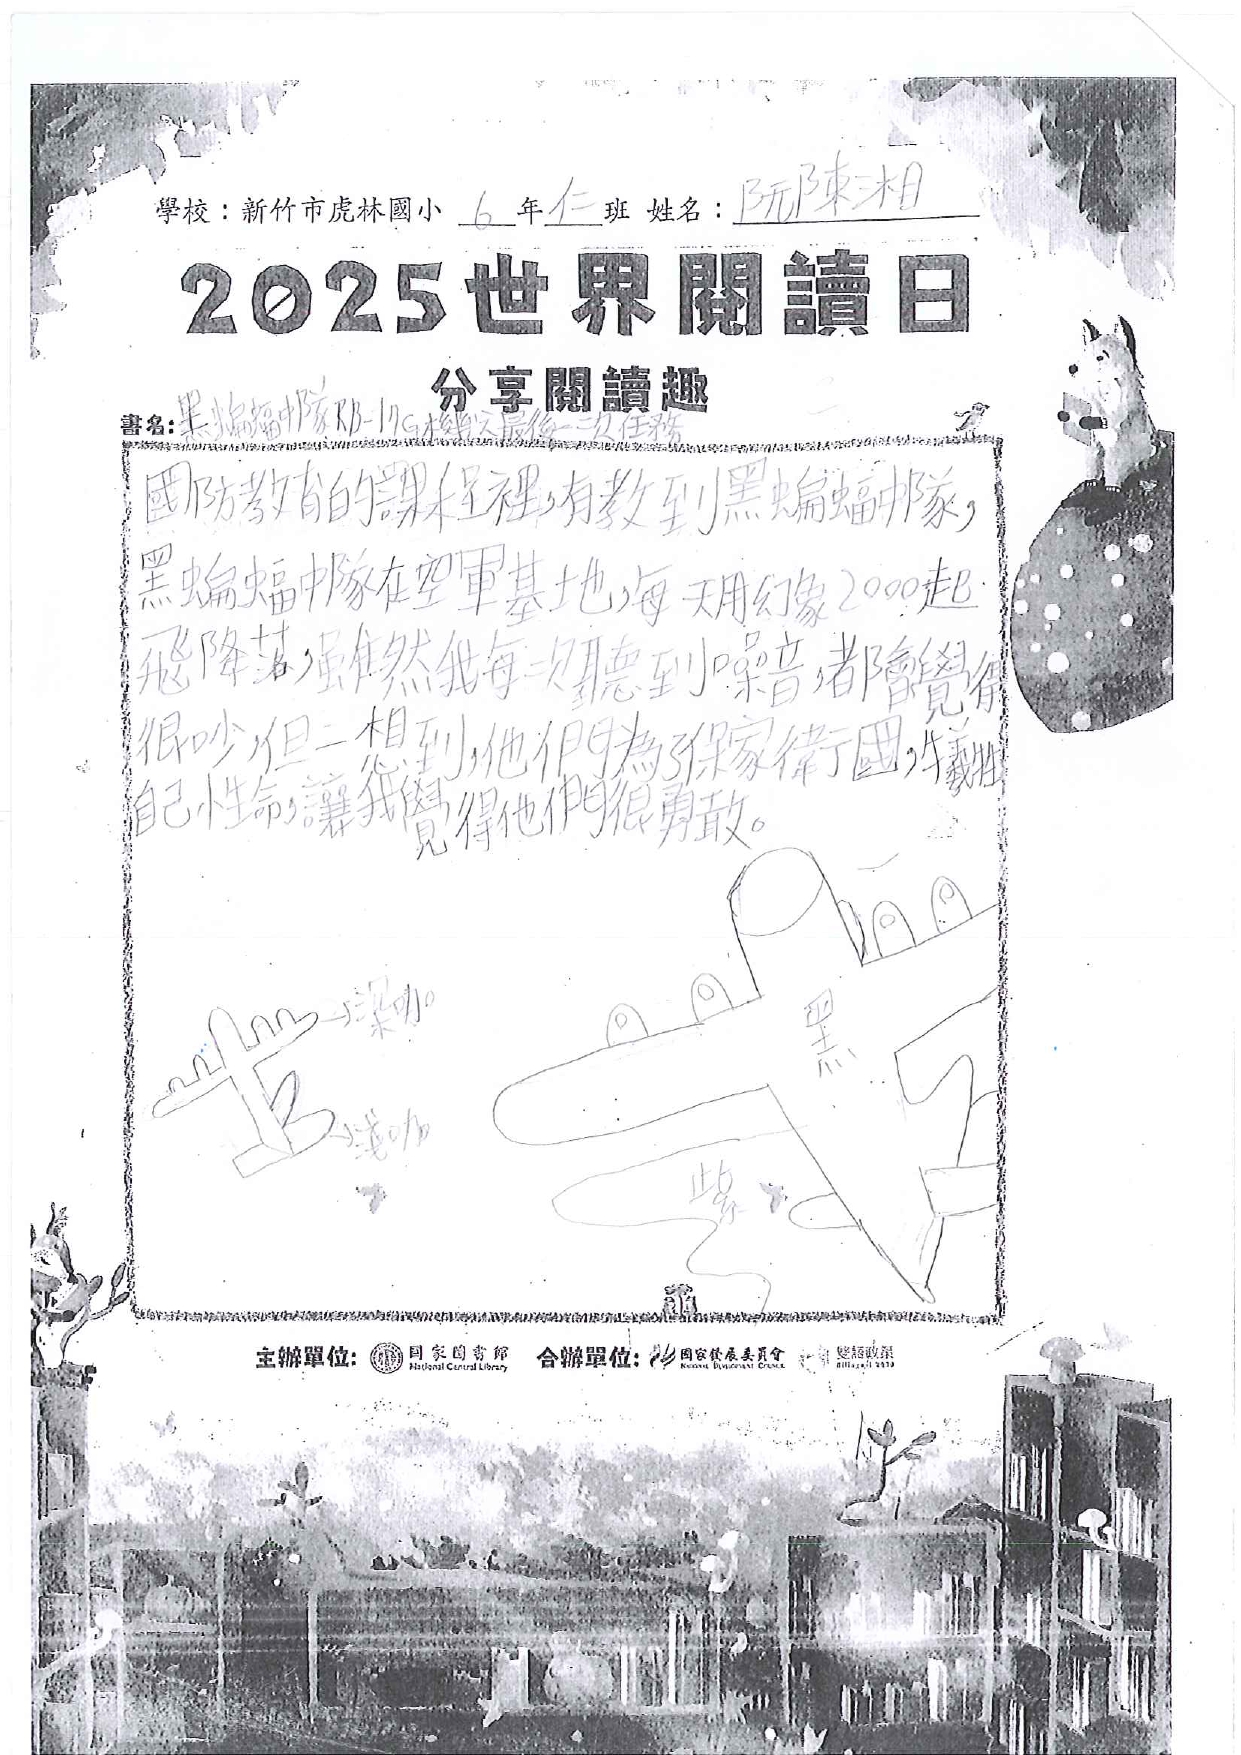 學校：新竹市虎林國小 6 年 仁 班 姓名：阮陳湘
2025世界閱讀日
分享閱讀趣
書名：黑蝙蝠中隊RB-17G機最後一次任務
國防教育的課程裡，有教到黑蝙蝠中隊，
黑蝙蝠中隊在空軍基地，每天用幻象2000起
飛降落，雖然我每次聽到噪音，都會覺得
很吵，但一想到，他們為了保家衛國，犧牲
自己性命，讓我覺得他們很勇敢。
黑
深咖
淺咖
紫
主辦單位：國家圖書館 National Central Library 合辦單位：國家發展委員會 National Development Council 雙語政策 Bilingual 2030